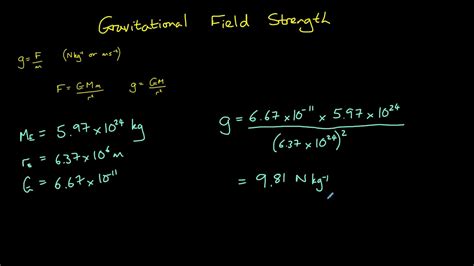 Gravitational Field Strength
g = F/m (Nkg⁻¹ or ms⁻²)
F = GMm/r² g = GM/r²
M_E = 5.97 x 10²⁴ kg
r_e = 6.37 x 10⁶ m
G = 6.67 x 10⁻¹¹
g = 6.67 x 10⁻¹¹ x 5.97 x 10²⁴ / (6.37 x 10²⁴)²
= 9.81 N kg⁻¹